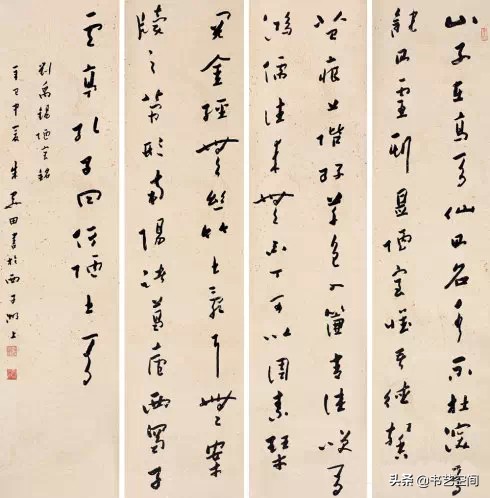 山不在高有仙則名水不在深有
龍則靈斯是陋室惟吾德馨
苔痕上階綠草色入簾青談笑有
鴻儒往來無白丁可以調素琴
閱金經無絲竹之亂耳無案
牘之勞形南陽諸葛廬西蜀子
雲亭孔子曰何陋之有
劉禹錫陋室銘
辛巳中夏朱關田書於西子湖上
头条 @书艺空间